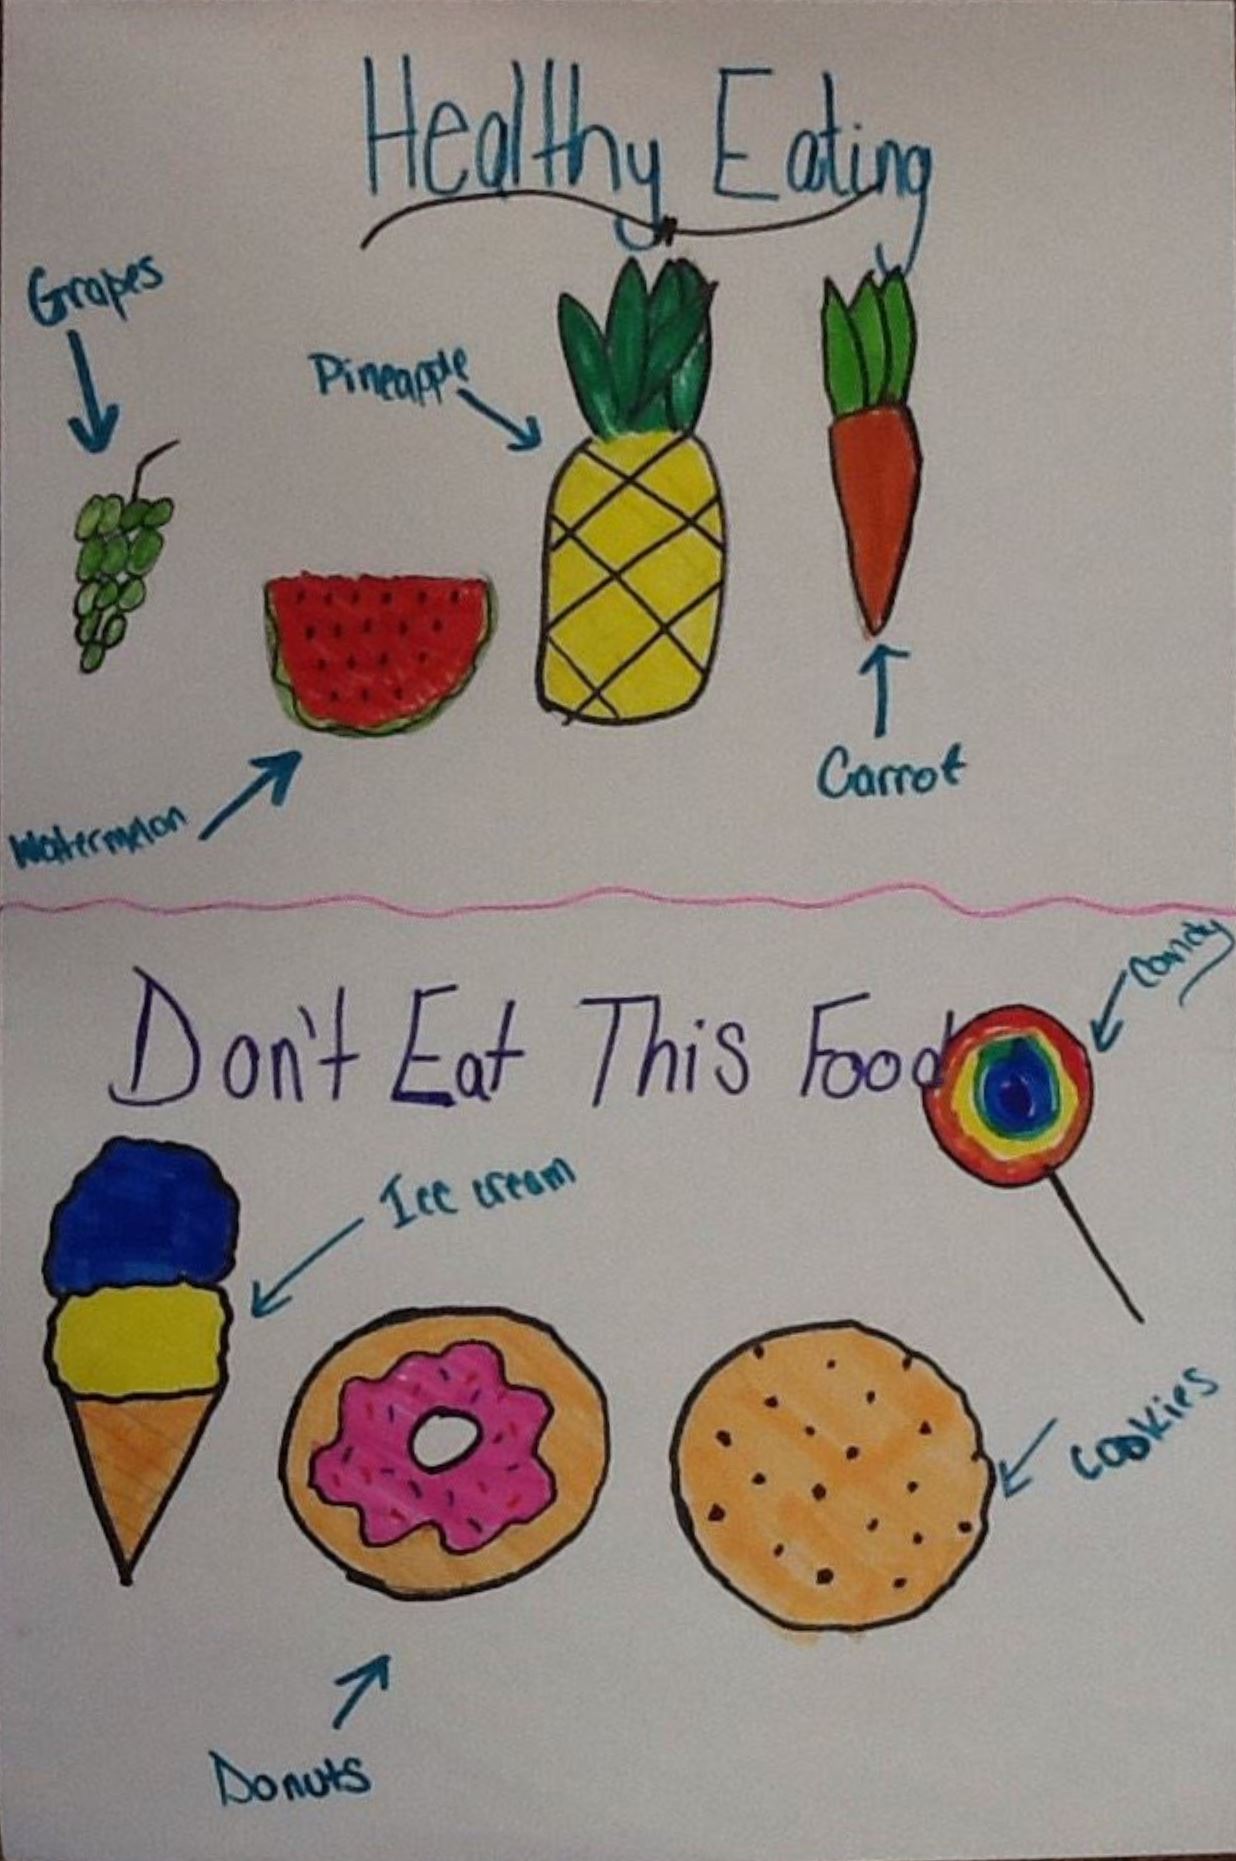 Healthy Eating
Grapes
Pineapple
Carrot
Watermelon
Candy
Don't Eat This Food
Ice cream
Cookies
Donuts